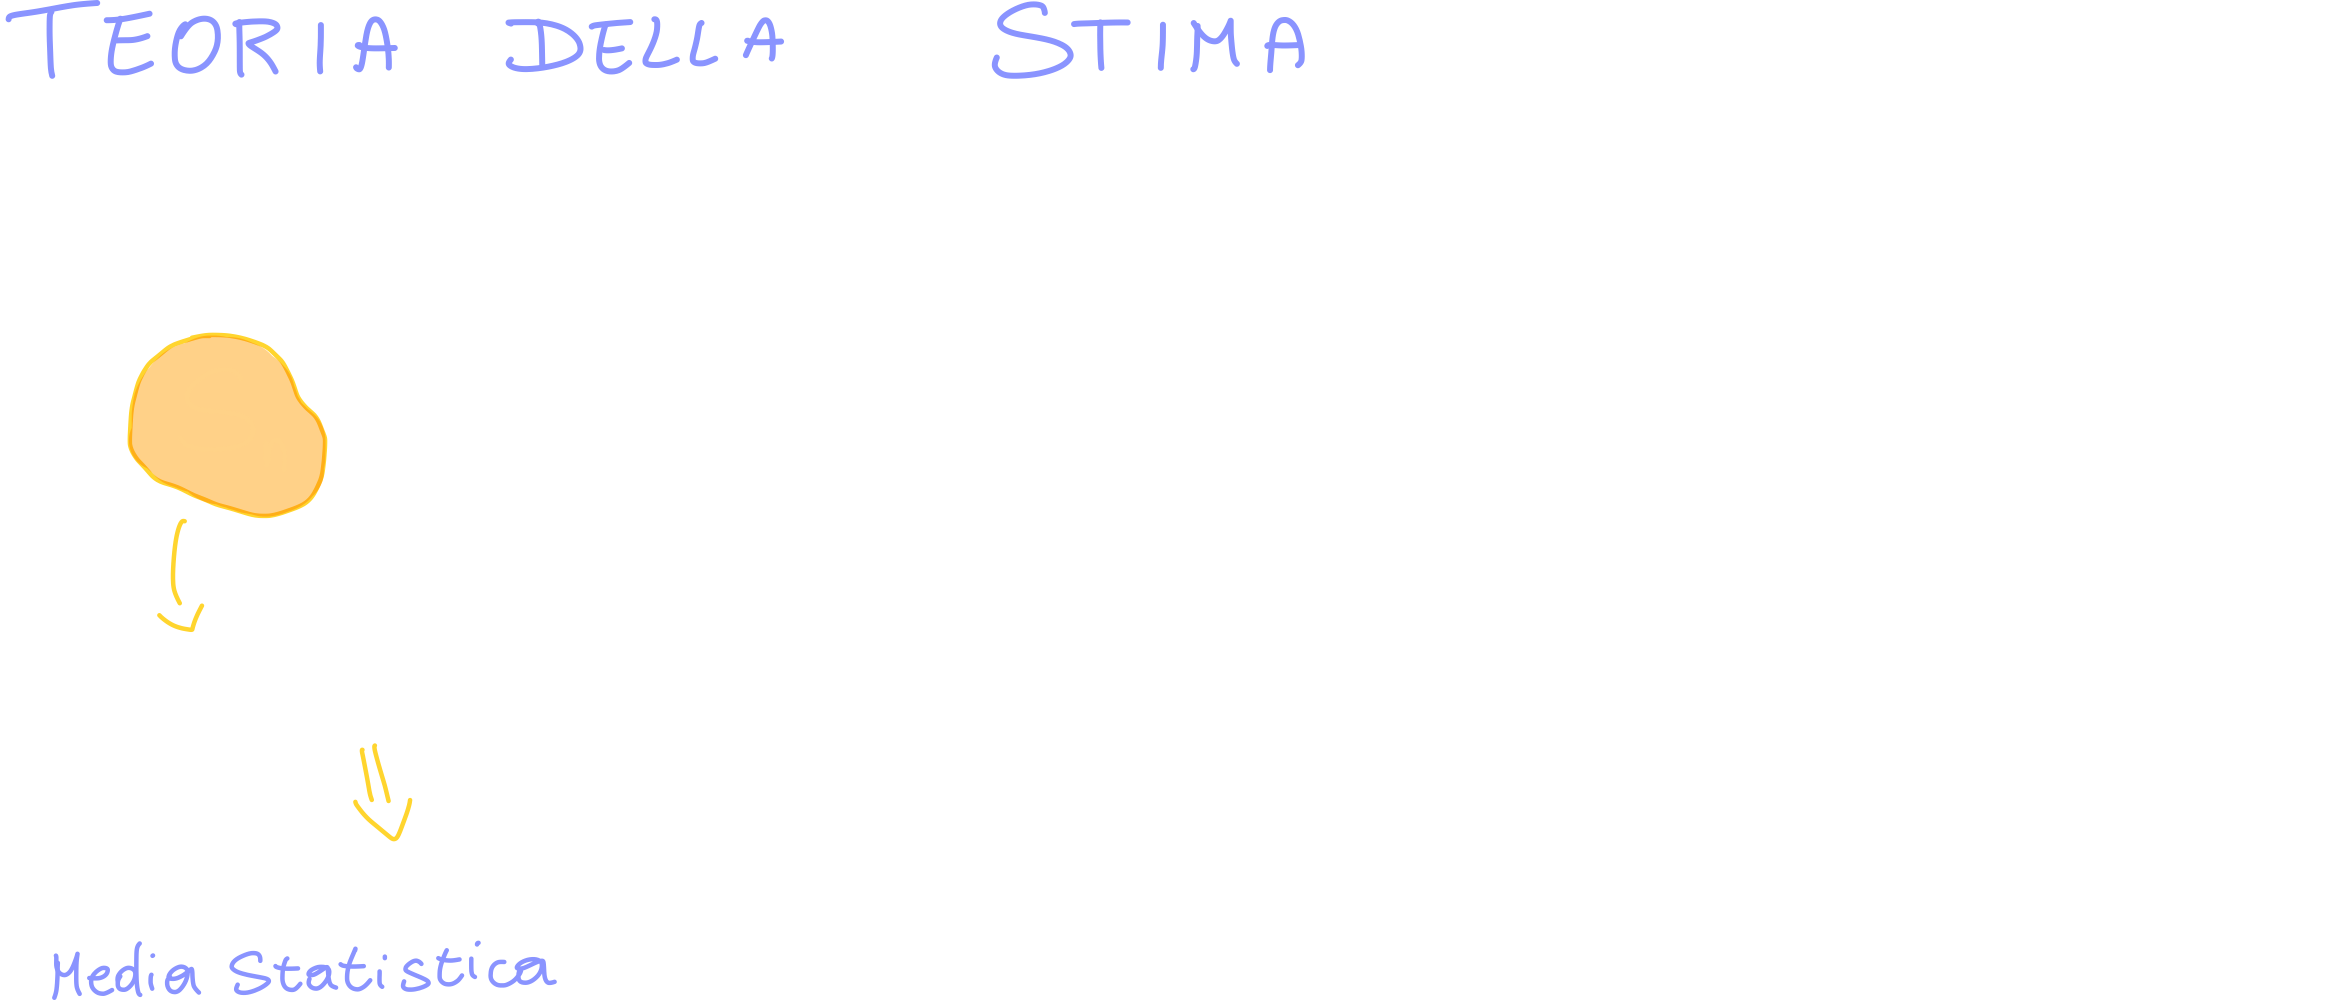 TEORIA DELLA STIMA
Media Statistica